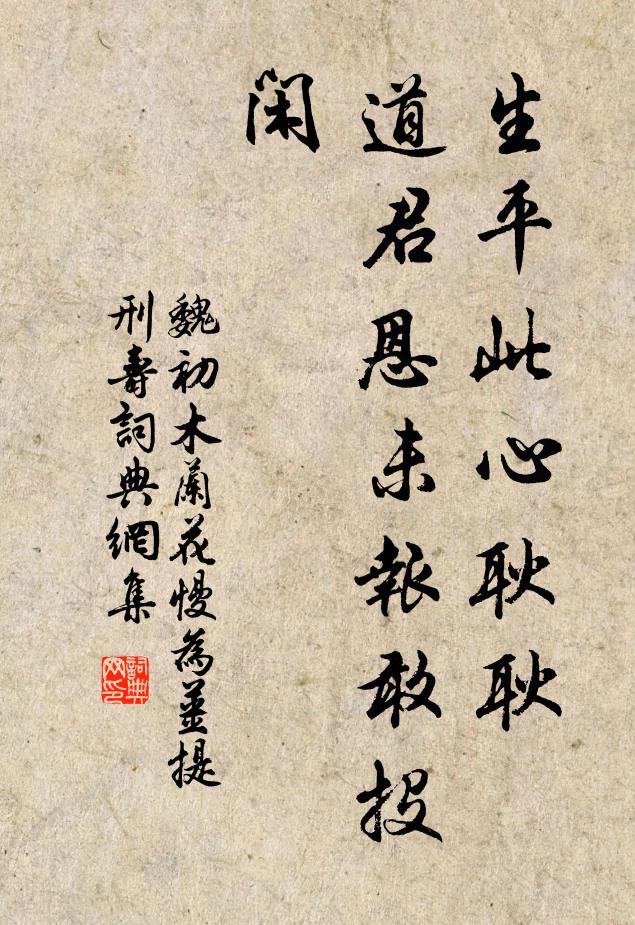 生平此心耿耿
道君恩未報敢投
閑
魏初木蘭花慢為姜提
刑壽詞典網集
詞典网印